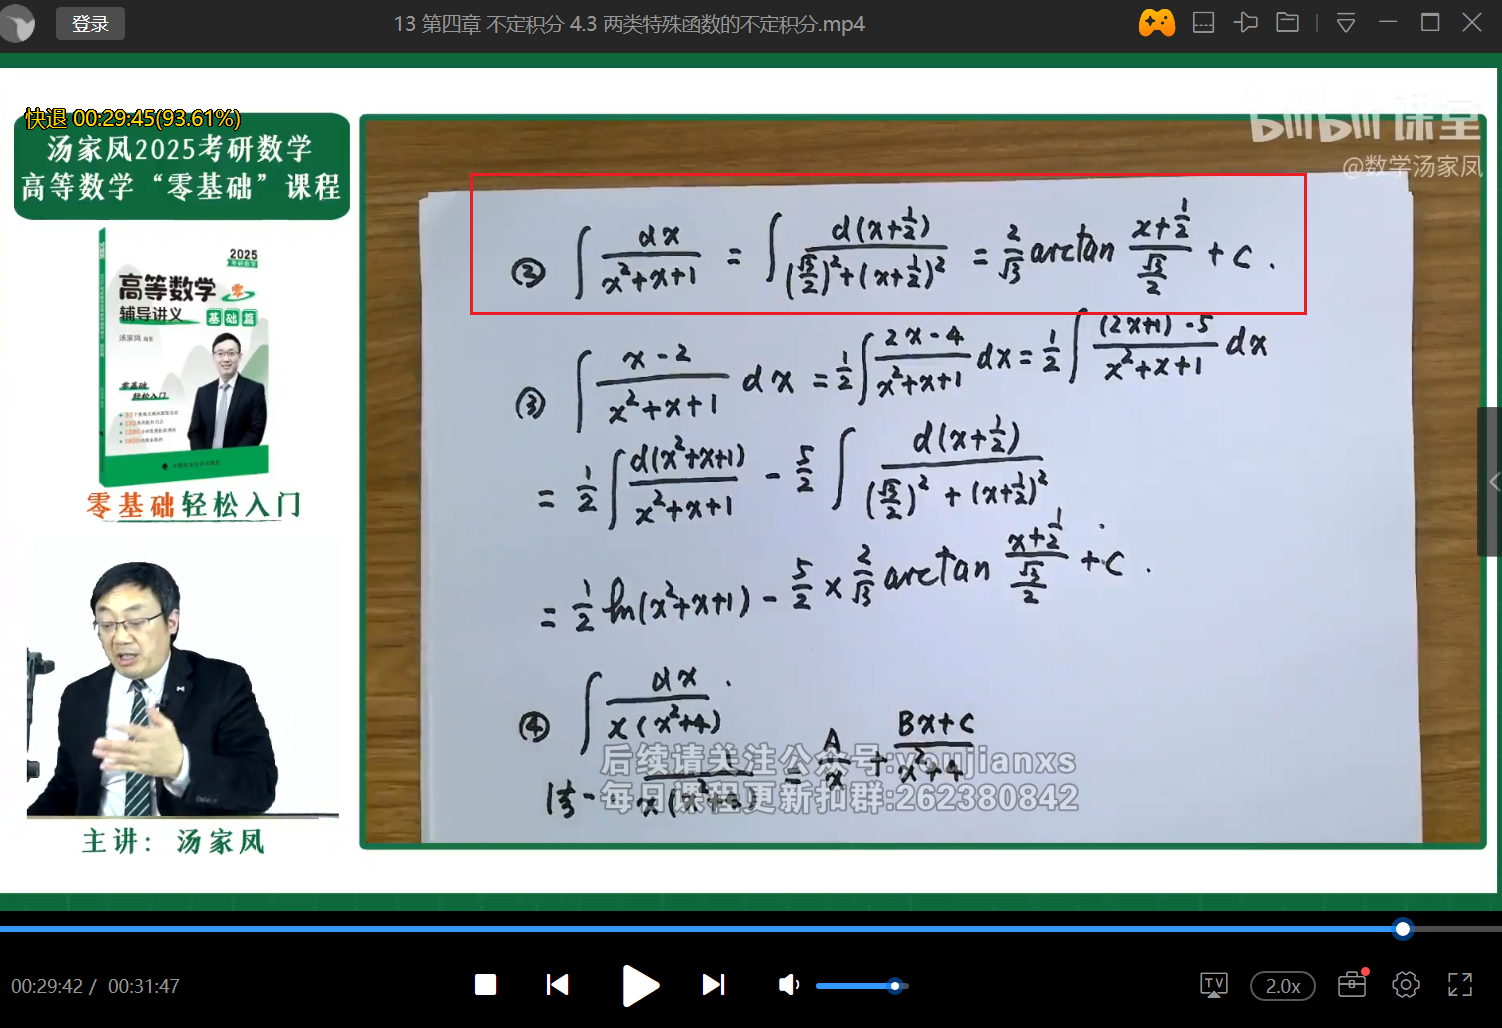 登录
13 第四章 不定积分 4.3 两类特殊函数的不定积分.mp4
快退 00:29:45(93.61%)
汤家凤2025考研数学
高等数学“零基础”课程
bilibili课堂
@数学汤家凤
2025
高等数学 零
辅导讲义 基础篇
汤家凤 编著
零基础
轻松入门
零基础轻松入门
主讲：汤家凤
② ∫ dx/(x²+x+1) = ∫ d(x+1/2)/((√3/2)²+(x+1/2)²) = 2/√3 arctan (x+1/2)/(√3/2) + C.
③ ∫ (x-2)/(x²+x+1) dx = 1/2 ∫ (2x-4)/(x²+x+1) dx = 1/2 ∫ ((2x+1)-5)/(x²+x+1) dx
= 1/2 ∫ d(x²+x+1)/(x²+x+1) - 5/2 ∫ d(x+1/2)/((√3/2)²+(x+1/2)²)
= 1/2 ln(x²+x+1) - 5/2 × 2/√3 arctan (x+1/2)/(√3/2) + C.
④ ∫ dx/(x(x²+4))
法一 1/(x(x²+4)) = A/x + (Bx+C)/(x²+4)
后续请关注公众号:youjianxs
每日课程更新扣群:262380842
00:29:42 / 00:31:47
TV
2.0x